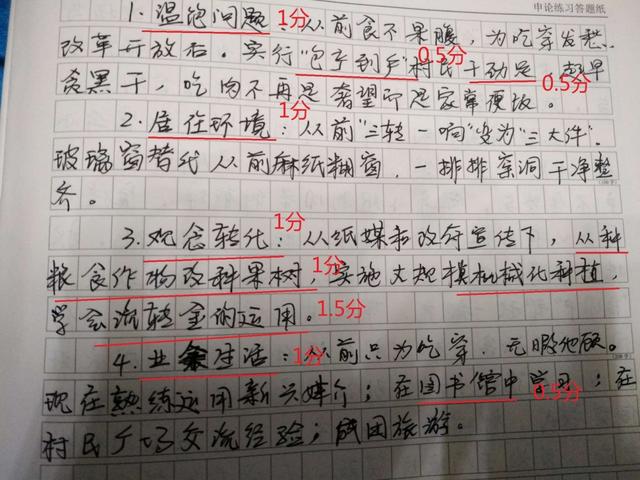 申论练习答题纸
1.温饱问题:从前食不果腹,为吃穿发愁。 1分
改革开放后,实行"包产到户"村民干劲足,起早 0.5分
贪黑干,吃肉不再是奢望而是家常便饭。 0.5分
2.居住环境:从前"三转一响"变为"三大件"。 1分
玻璃窗替代从前麻纸糊窗,一排排窑洞干净整
齐。
3.观念转化:从纸媒和政府宣传下,从种 1分
粮食作物改种果树,实施大规模机械化种植, 1分
学会流转金的运用。 1.5分
4.业余生活:从前只为吃穿,无暇他顾。 1分
现在熟练运用新兴媒介;在图书馆中学习;在 0.5分
村民广场交流经验;成团旅游。